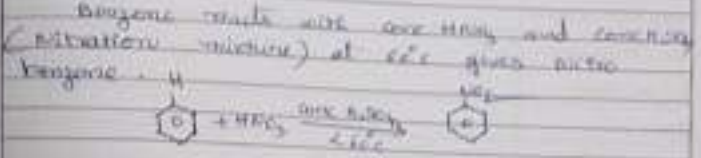 Benzene reacts with conc HNO3 and conc H2SO4
(nitration mixture) at 60°c gives nitro
benzene.
H NO2
+ HNO3 conc H2SO4
< 60°c